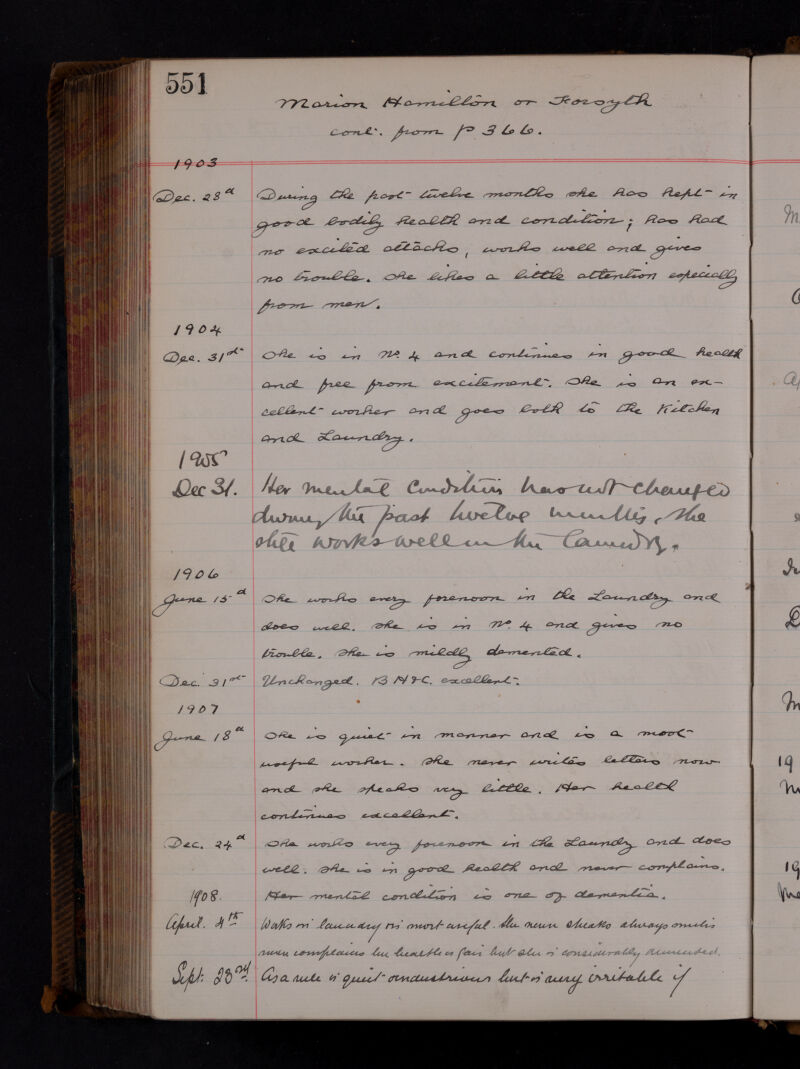 551
Marion Hamilton or Forsyth
cont. from p 366.
1903
Dec. 28th During the past twelve months she has kept in
good bodily health and condition; has had
no excited attacks, works well and gives
no trouble. She likes a little attention especially
from men.
1904
Dec. 31st She is in No. 4 and continues in good health
and free from excitement. She is an ex-
cellent worker and goes both to the Kitchen
and Laundry.
1905
Dec 31. Her mental condition has not changed
during the past twelve months, she
still works well in the laundry.
1906
June 15th She works every forenoon in the Laundry and
does well. She is in No. 4 and gives no
trouble. She is mildly demented.
Dec. 31st Unchanged. B H & C. excellent.
1907
June 18th She is quiet in manner and is a most
useful worker. She never writes letters now
and she speaks very little. Her health
continues excellent.
Dec. 24th She works every forenoon in the Laundry and does
well. She is in good health and never complains.
Her mental condition is one of dementia.
1908.
April. 4th Works in laundry is most useful. She never speaks always smiles
never complains her health is fair but she is considerably demented.
Sept. 23rd As a rule is quiet & industrious but is very irritable if